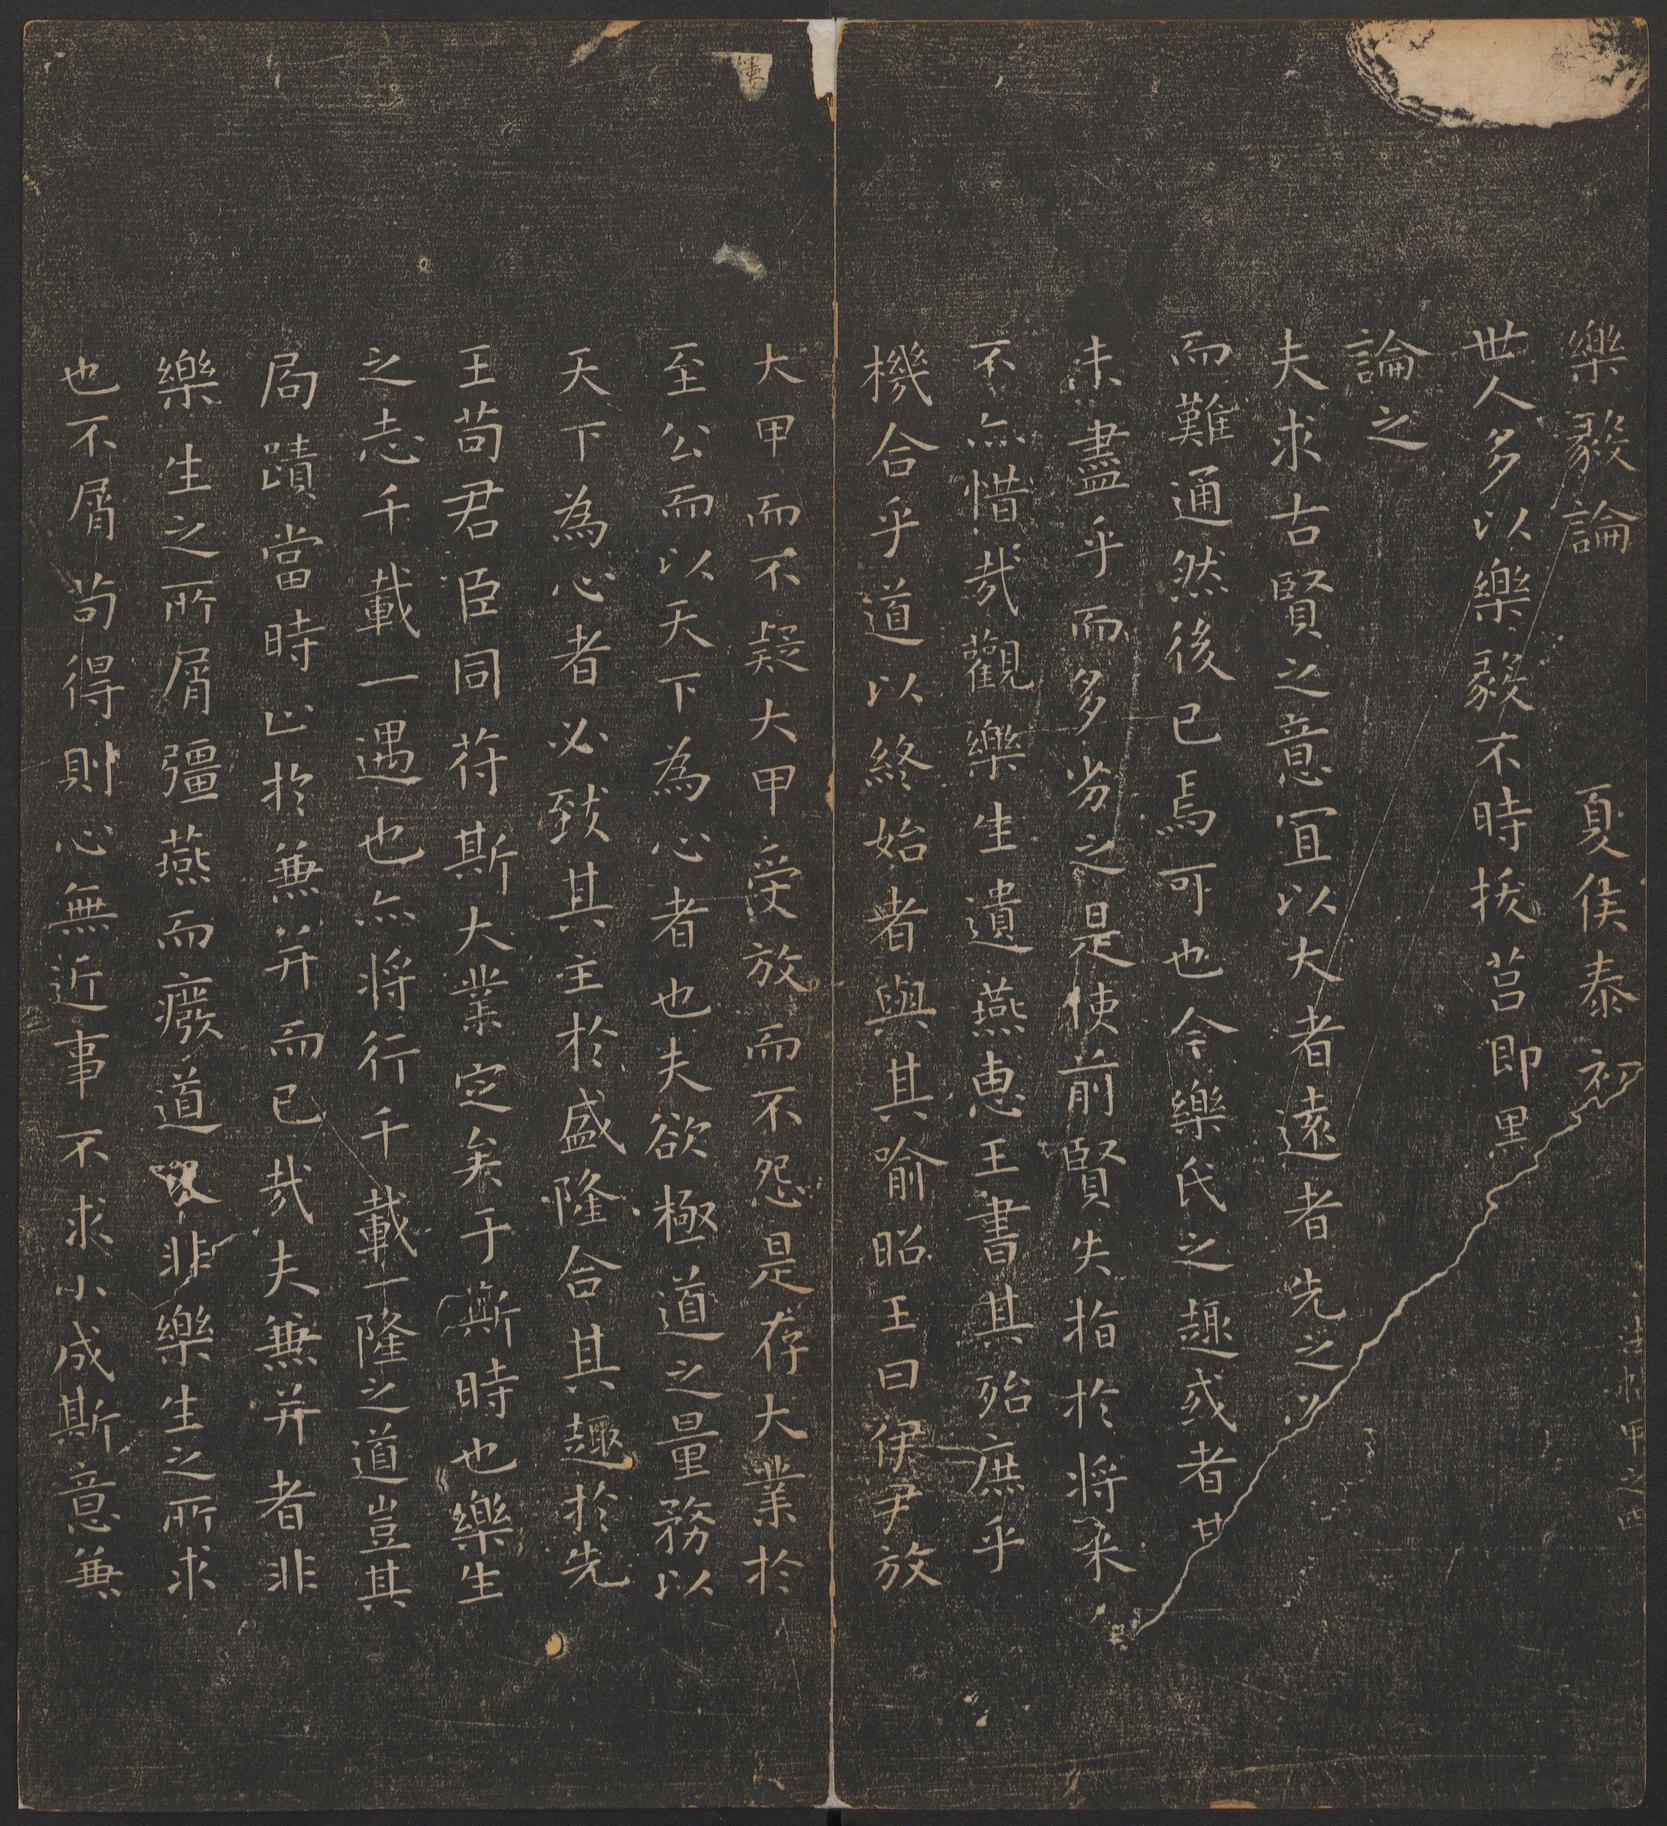 樂毅論 夏侯泰初
世人多以樂毅不時拔莒即墨
論之
夫求古賢之意宜以大者遠者先之必
而難通然後已焉可也今樂氏之趣或者其
未盡乎而多劣之是使前賢失指於將來
不亦惜哉觀樂生遺燕惠王書其殆庶乎
機合乎道以終始者與其喻昭王曰伊尹放
大甲而不疑大甲受放而不怨是存大業於
至公而以天下為心者也夫欲極道之量務以
天下為心者必致其主於盛隆合其趣於先
王苟君臣同符斯大業定矣于斯時也樂生
之志千載一遇也亦將行千載一隆之道豈其
局蹟當時止於兼并而已哉夫兼并者非
樂生之所屑彊燕而廢道又非樂生之所求
也不屑苟得則心無近事不求小成斯意兼
法帖甲之四